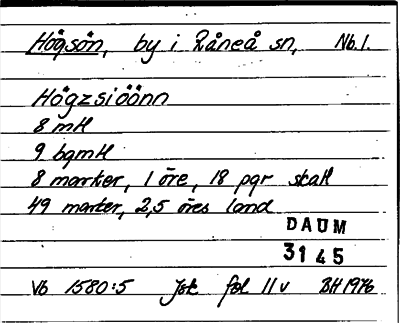 Högsön, by i Råneå sn, Nb.l.
Högzsiöönn
8 mtl
9 bgmtl
8 marker, 1 öre, 18 pgr skatt
49 marker, 2,5 öres land
DAUM
3145
Vb 1580:5 Jok fol 11v BH 1976